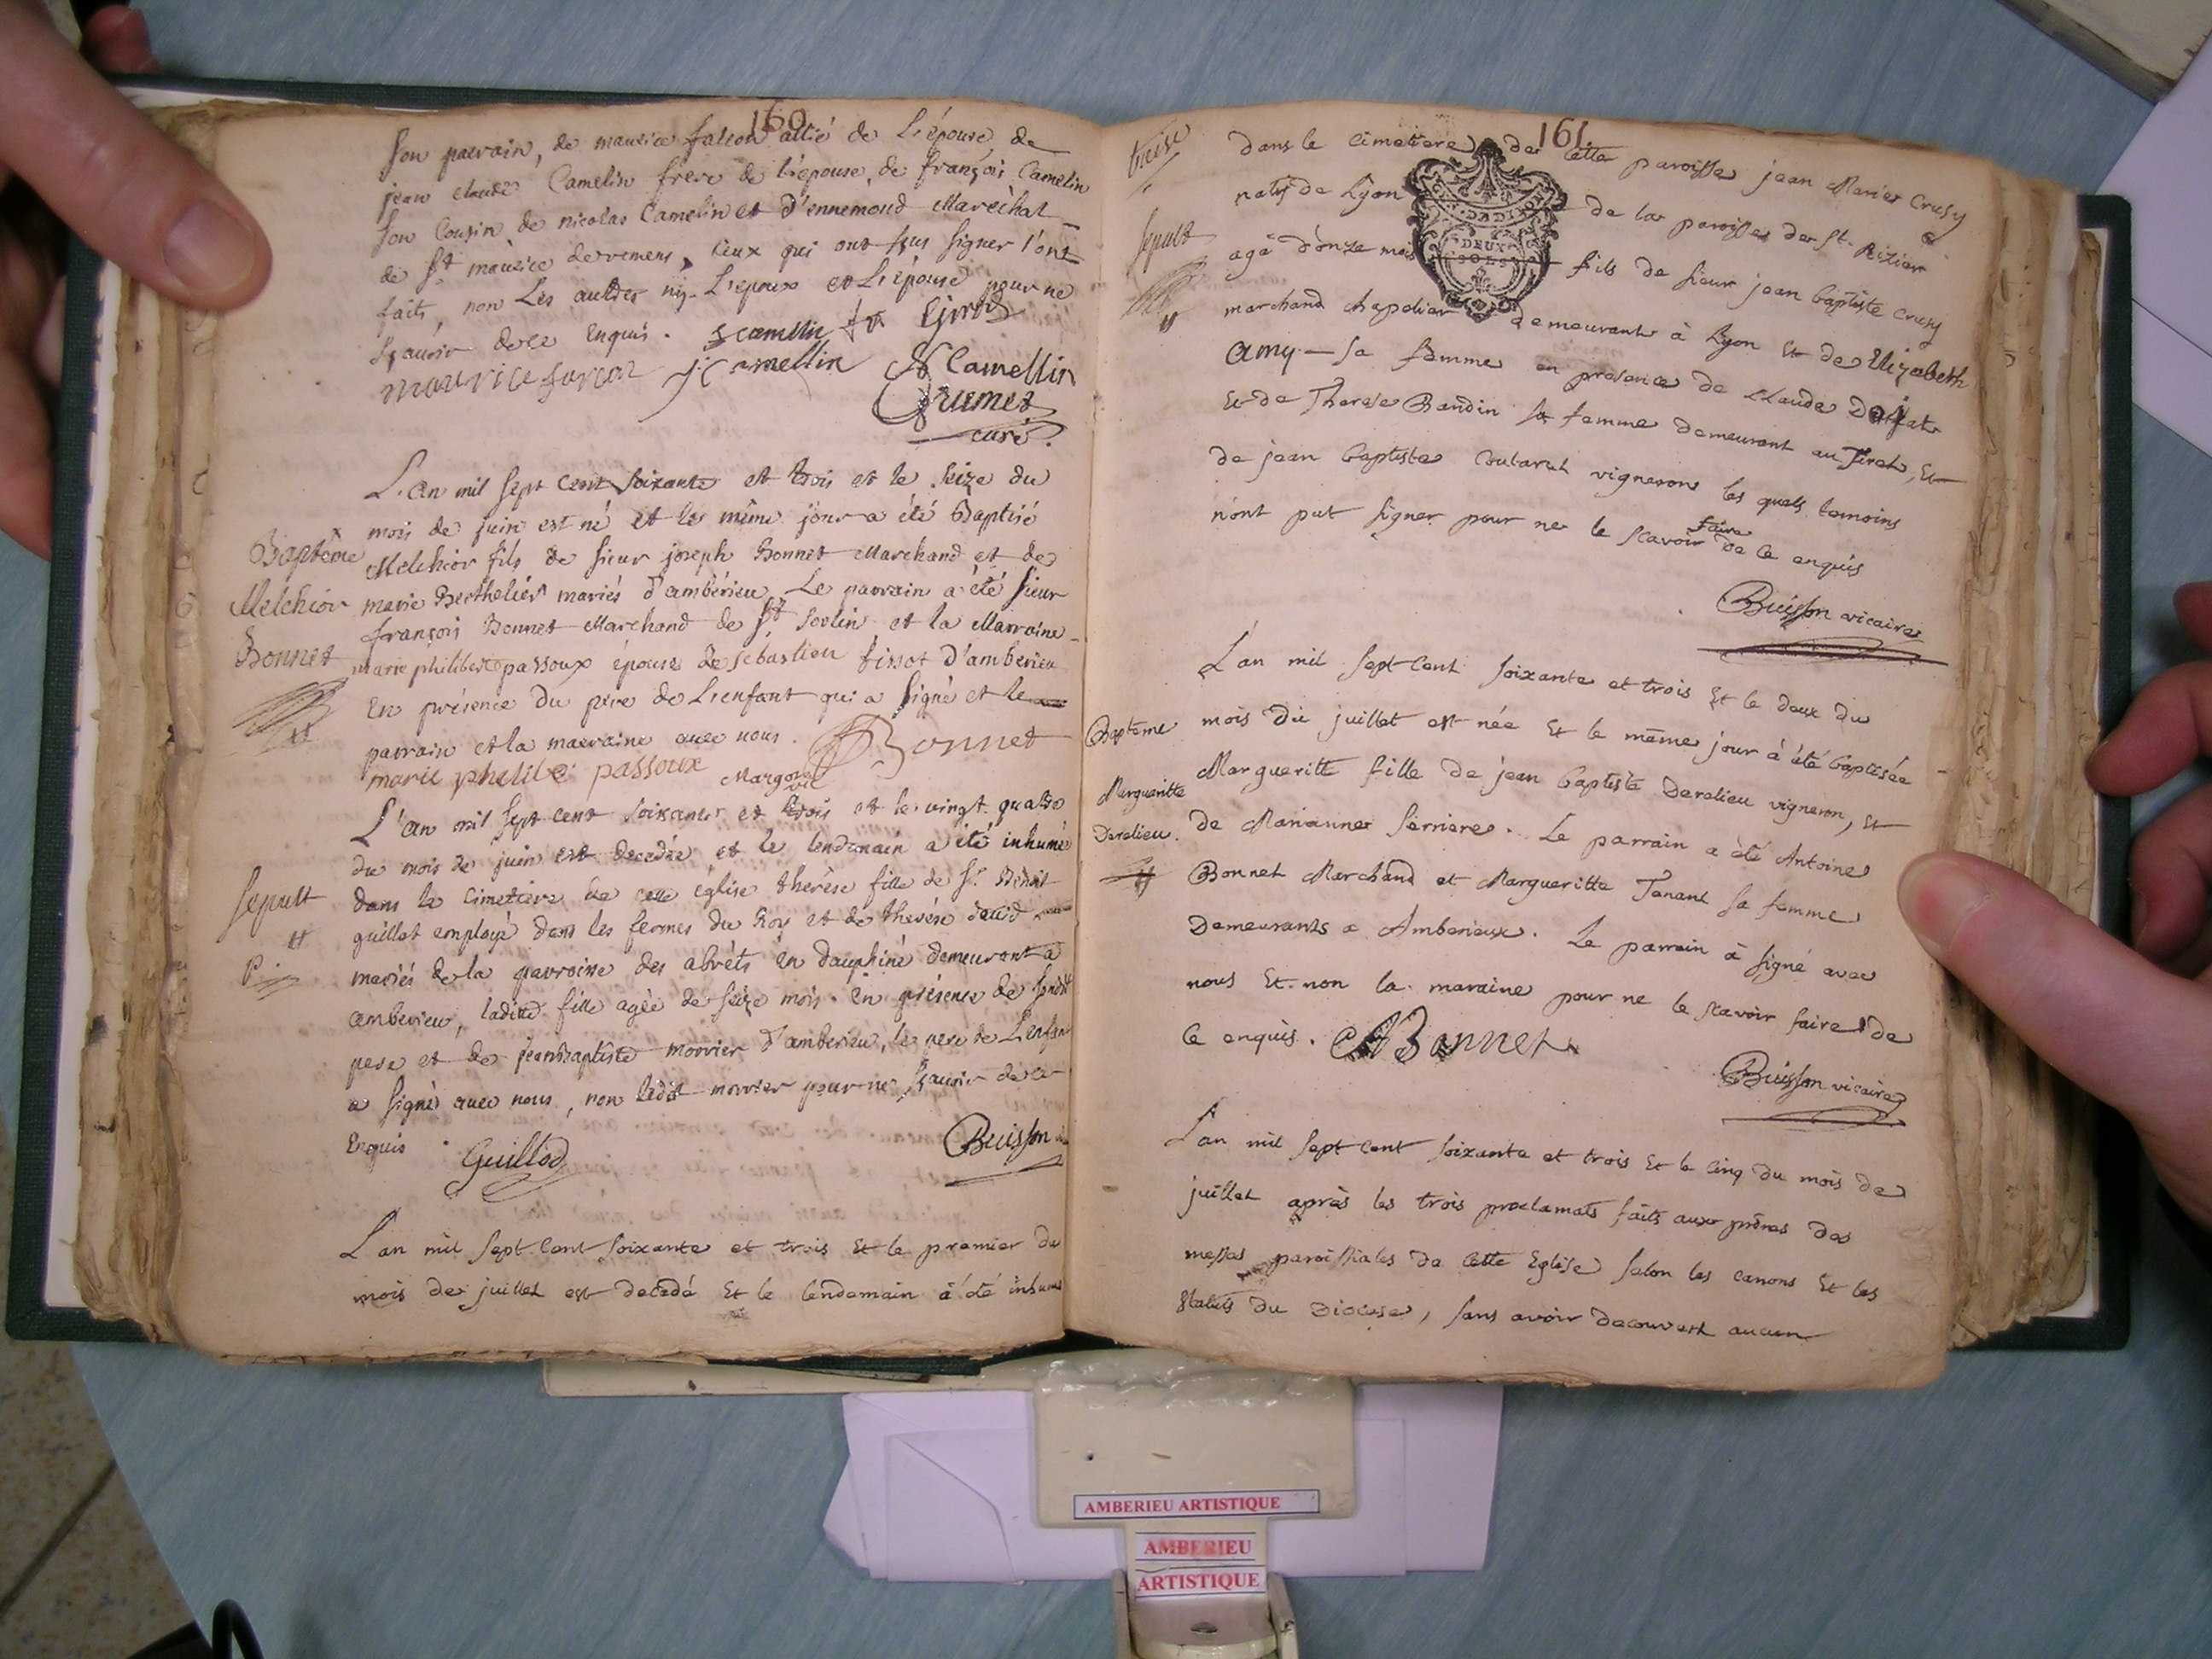 160
son parrain, de maurice falcon allié de L'épouse, de
jean claude Camelin frere de L'épouse, de françois Camelin
son Cousin de nicolas Camelin et d'ennemond Maréchal
de St maurice deremens, Ceux qui ont sçus signer l'ont
faits, non Les aultres ny L'epoux et L'épouse pour ne
sçavoir de ce Enquis. camellin
maurice farcon J Camellin Camellin
Grumet
curé.
L'an mil sept cent soixante et trois et le seize du
mois de juin est né et le même jour a été Baptisé
Baptême Melchior fils de sieur joseph Bonnet Marchand et de
Melchior marie Berthelier mariés d'ambérieu, Le parrain a été sieur
françois Bonnet Marchand de St Sorlin et la Marraine
Bonnet marie philiberte passoux épouse de sebastien tissot d'amberieu
En présence du pere de L'enfant qui a signé et le
parrain et la marraine avec nous. Bonnet
marie philibe passoux
L'an mil sept cent soixante et trois et le vingt quatre
du mois de juin est decedée et le lendemain a été inhumé
sepult dans le cimetiere de cette église therèse fille de Sr. Benoit
guillot employé dans les fermes du Roy et de therèse david
mariés de la parroisse des abrèts en dauphiné demeurant a
amberieu, ladite fille agée de seize mois. En présence de sondit
pere et de jean baptiste morrier d'amberieu, le pere de L'enfan
a signés avec nous, non ledit morrier pour ne sçavoir de ce
Enquis. Guillod Buisson
L'an mil sept cent soixante et trois Et le premier du
mois de juillet est decedé Et le lendemain a été inhumé
161.
dans le cimetiere de cette paroisse jean Crusy
natif de Lyon de la paroisse de St. Nizier
sepult agé d'onze mois fils de sieur jean baptiste crusy
marchand chapelier demeurants à Lyon Et de Elizabeth
amy sa femme en presence de Claude
Et de Therese Baudin sa femme demeurant au Tiret, Et
de jean baptiste vigneron les quels temoins
n'ont put signer pour ne le scavoir faire de ce enquis
Buisson vicaire
L'an mil sept cent soixante et trois Et le deux du
Baptême mois du juillet est née Et le même jour à été baptisée
Margueritte Margueritte fille de jean baptiste Derelieu vigneron, Et
Derelieu. de Marianne serriere. Le parrain a été Antoine
Bonnet Marchand et Margueritte Tenant sa femme
Demeurants a Amberieux. Le parrain à signé avec
nous Et non la maraine pour ne le scavoir faire de
Ce enquis. ABonnet
Buisson vicaire
L'an mil sept cent soixante et trois Et le cinq du mois de
juillet après les trois proclamats faits aux prônes des
messes paroissiales de cette Eglise selon les canons Et les
statuts du Diocese, sans avoir decouvert aucun
DEUX
SOLS
AMBERIEU ARTISTIQUE
AMBERIEU
ARTISTIQUE